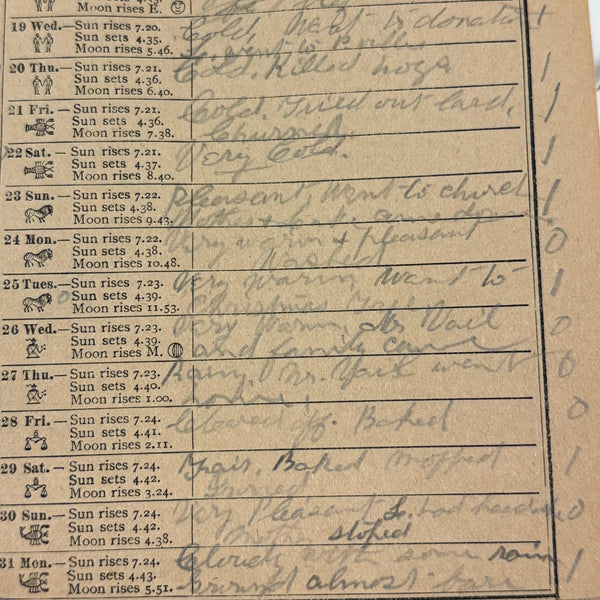 Moon rises E.
19 Wed.—Sun rises 7.20. Cold, Went to donation 1
Sun sets 4.35.
Moon rises 5.46. went to
20 Thu.—Sun rises 7.21. Cold. Killed hogs 1
Sun sets 4.36.
Moon rises 6.40.
21 Fri.—Sun rises 7.21. Cold. Tried out lard. 1
Sun sets 4.36.
Moon rises 7.38. Churned.
22 Sat.—Sun rises 7.21. Very Cold. 1
Sun sets 4.37.
Moon rises 8.40.
23 Sun.—Sun rises 7.22. Pleasant, Went to church 1
Sun sets 4.38.
Moon rises 9.43. came
24 Mon.—Sun rises 7.22. Very warm & pleasant 0
Sun sets 4.38.
Moon rises 10.48. Washed
25 Tues.—Sun rises 7.23. Very Warm Went to 1
Sun sets 4.39.
Moon rises 11.53. Christmas
26 Wed.—Sun rises 7.23. Very Warm, Mr Vail 0
Sun sets 4.39.
Moon rises M. and family came
27 Thu.—Sun rises 7.23. Rainy. Mr. went 0
Sun sets 4.40.
Moon rises 1.00. home.
28 Fri.—Sun rises 7.24. Cleared off. Baked 0
Sun sets 4.41.
Moon rises 2.11.
29 Sat.—Sun rises 7.24. Fair. Baked mopped 1
Sun sets 4.42.
Moon rises 3.24.
30 Sun.—Sun rises 7.24. Very Pleasant L. had 0
Sun sets 4.42.
Moon rises 4.38. stoped
31 Mon.—Sun rises 7.24. Cloudy with some rain 1
Sun sets 4.43.
Moon rises 5.51. almost